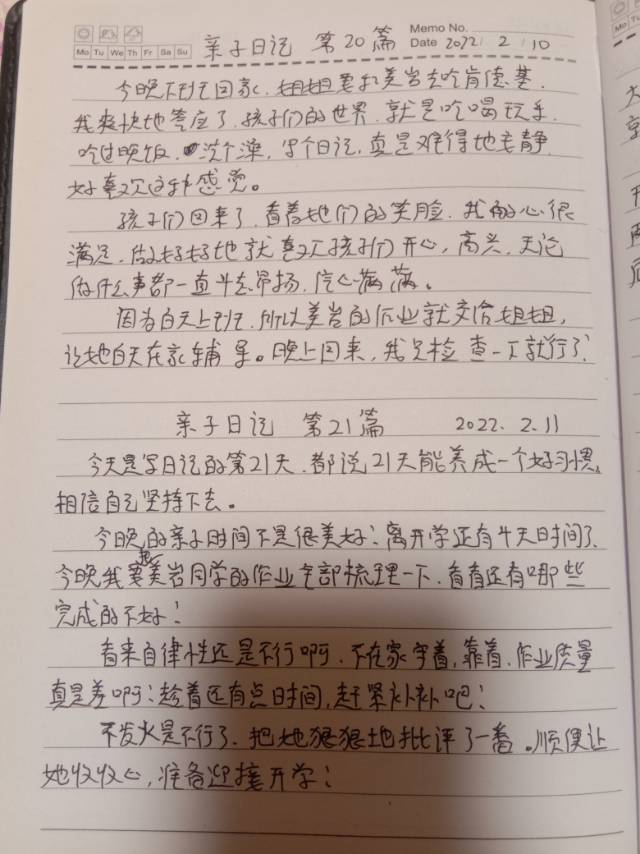 Memo No.
Mo Tu We Th Fr Sa Su
Date 2022 / 2 / 10
亲子日记 第20篇
今晚下班回家,姐姐要和美岩去吃肯德基.
我爽快地答应了.孩子们的世界.就是吃喝玩乐.
吃过晚饭.洗个澡,写个日记,真是难得地安静
好喜欢这种感觉。
孩子们回来了.看着她们的笑脸.我的心很
满足.做好好地就喜欢孩子们开心,高兴.无论
做什么事都一直斗志昂扬.信心满满。
因为白天上班.所以美岩的作业就交给姐姐,
让她白天在家辅导。晚上回来,我只检查一下就行了!
亲子日记 第21篇 2022. 2. 11
今天是写日记的第21天.都说21天能养成一个好习惯,
相信自己坚持下去。
今晚的亲子时间不是很美好!离开学还有4天时间了.
今晚我把美岩同学的作业全部梳理一下.看看还有哪些
完成的不好!
看来自律性还是不行啊.不在家守着,靠着.作业质量
真是差啊!趁着还有点时间,赶紧补补吧!
不发火是不行了.把她狠狠地批评了一番。顺便让
她收收心,准备迎接开学!